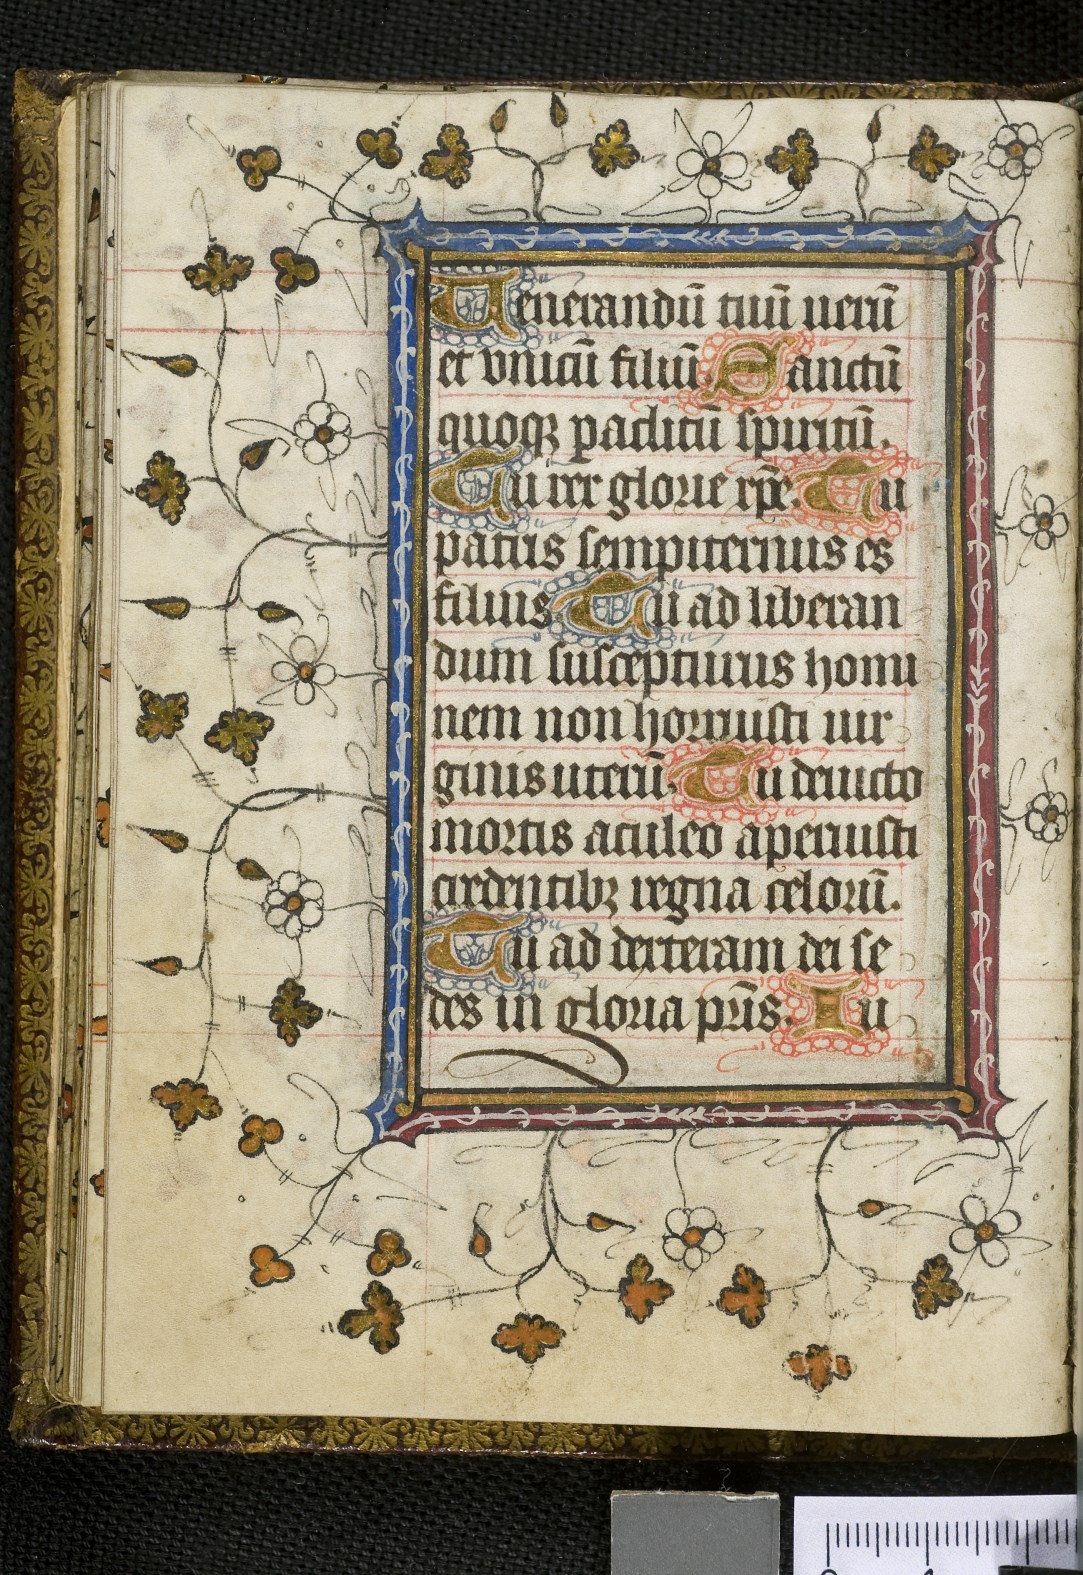 Uenerandū tuū uerū
et vnicū filiū. Sanctū
quoqꝫ paclitū spiritū.
Tu rex glorie xp̄e. Tu
patris sempiternus es
filius. Tu ad liberan
dum suscepturus homi
nem non horruisti uir
ginis uterū. Tu deuicto
mortis aculeo aperuisti
credentibꝫ regna celorū.
Tu ad dexteram dei se
des in gloria pr̄is. Iu
0 1